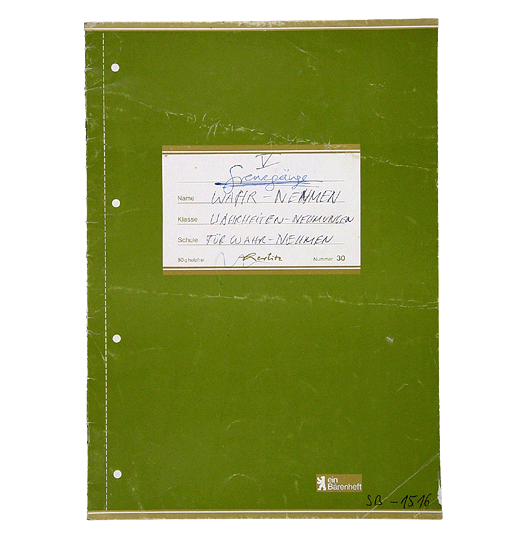 V
Grenzgänge
Name WAHR-NEHMEN
Klasse WAHRHEITEN-NEHMUNGEN
Schule FÜR WAHR-NEHMEN
80 g holzfrei Berlitz Nummer 30
ein
Bärenheft
SB-1516